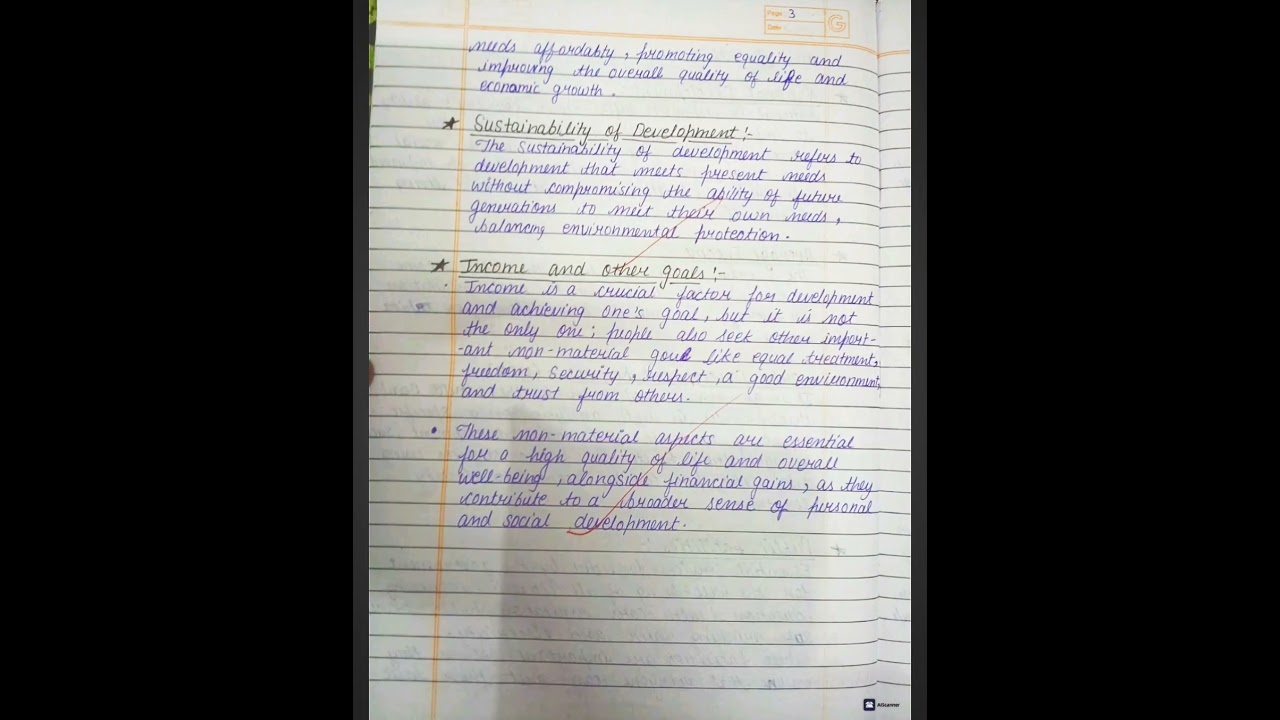 Page: 3
Date:
needs affordably, promoting equality and
improving the overall quality of life and
economic growth.
★ Sustainability of Development:-
The sustainability of development refers to
development that meets present needs
without compromising the ability of future
generations to meet their own needs,
balancing environmental protection.
★ Income and other goals:-
Income is a crucial factor for development
and achieving one's goal, but it is not
the only one; people also seek other import-
-ant non-material goal like equal treatment,
freedom, security, respect, a good environment,
and trust from others.
• These non-material aspects are essential
for a high quality of life and overall
well-being, alongside financial gains, as they
contribute to a broader sense of personal
and social development.
AIScanner